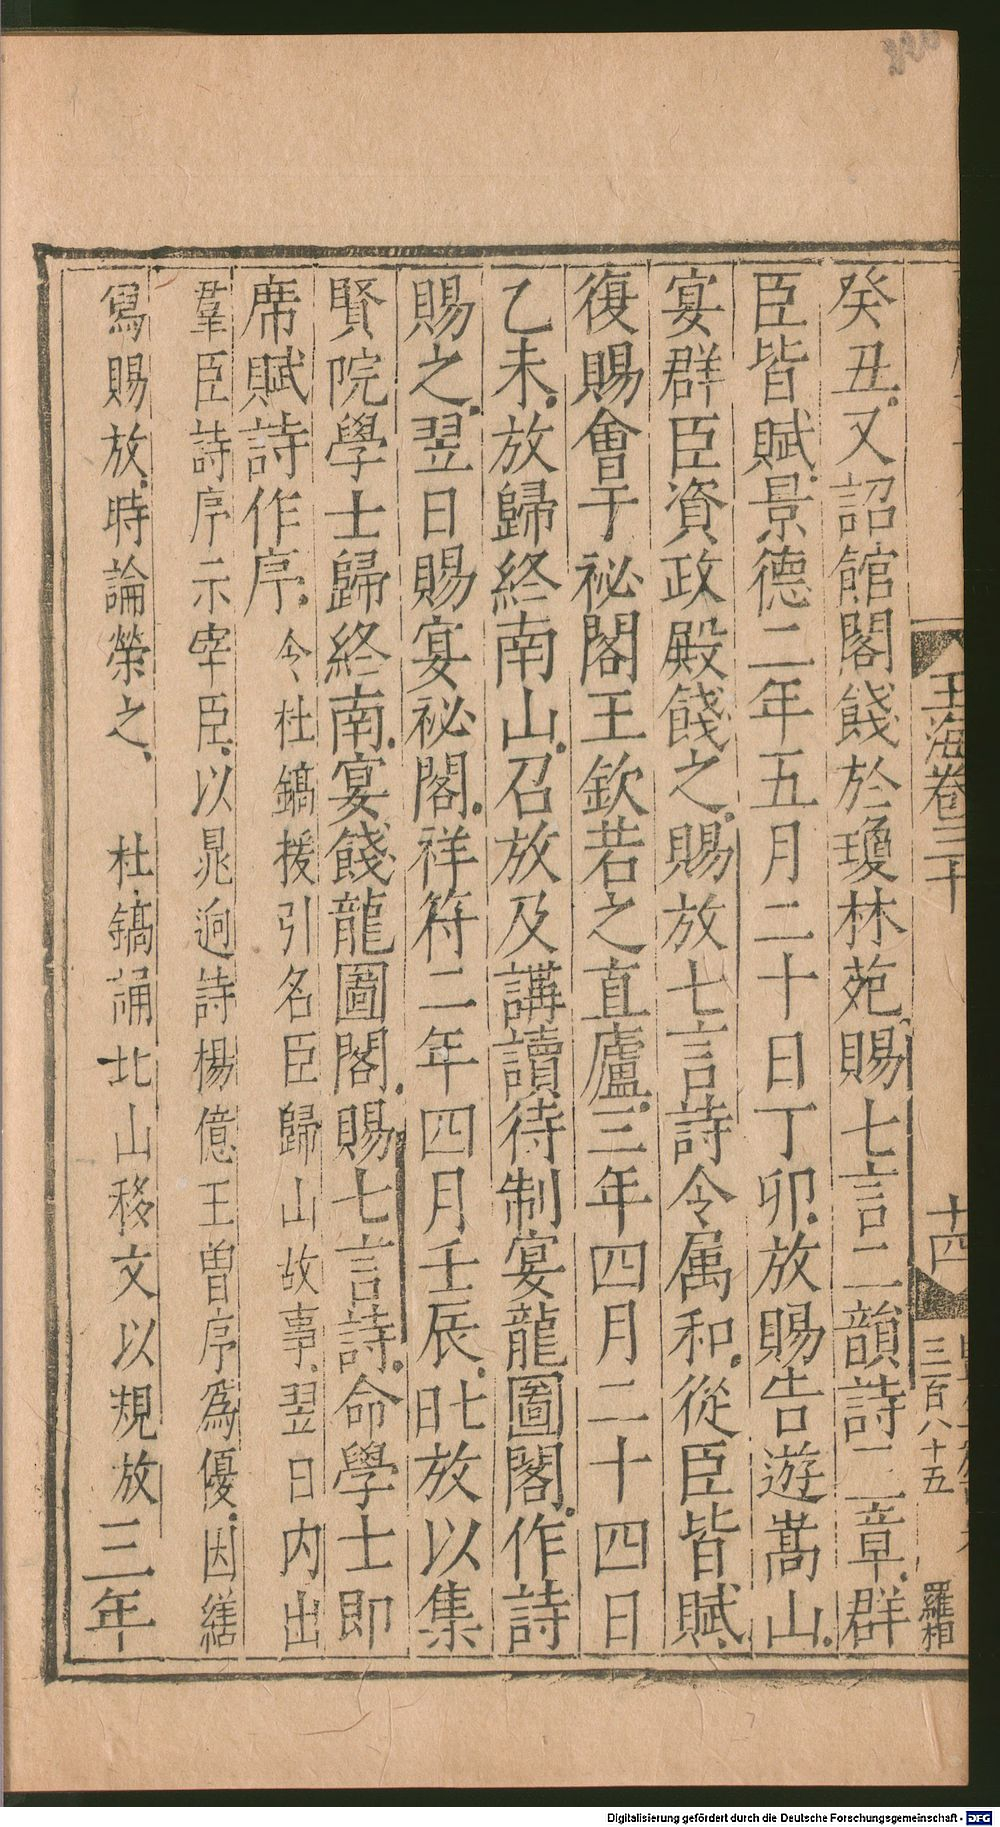 癸丑又詔館閣餞於瓊林苑賜七言二韻詩二章群
臣皆賦景德二年五月二十日丁卯放賜告遊嵩山
宴群臣資政殿餞之賜放七言詩令属和從臣皆賦
復賜會于祕閣王欽若之直廬三年四月二十四日
乙未放歸終南山召放及講讀待制宴龍圖閣作詩
賜之翌日賜宴祕閣祥符二年四月壬辰𣅜放以集
賢院學士歸終南宴餞龍圖閣賜七言詩命學士即
席賦詩作序令杜鎬援引名臣歸山故事翌日内出
羣臣詩序示宰臣以晁迥詩楊億王曽序爲優因繕
寫賜放時論榮之 杜鎬誦北山移文以規放三年
玉海卷三十
十四
三百八十五
羅相
Digitalisierung gefördert durch die Deutsche Forschungsgemeinschaft - DFG